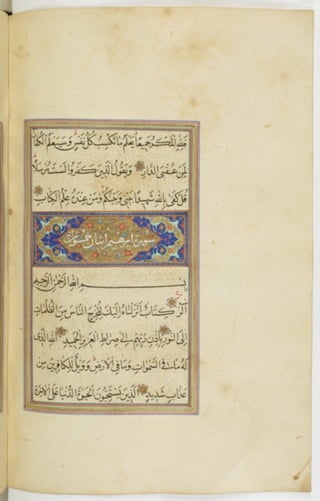 فَلِلَّهِ الْمَكْرُ جَمِيعًا يَعْلَمُ مَا تَكْسِبُ كُلُّ نَفْسٍ وَسَيَعْلَمُ الْكُفَّارُ
لِمَنْ عُقْبَى الدَّارِ وَيَقُولُ الَّذِينَ كَفَرُوا لَسْتَ مُرْسَلًا
قُلْ كَفَى بِاللَّهِ شَهِيدًا بَيْنِي وَبَيْنَكُمْ وَمَنْ عِنْدَهُ عِلْمُ الْكِتَابِ
سورة ابرهيم اثنتان وخمسون
بِسْمِ اللَّهِ الرَّحْمَنِ الرَّحِيمِ
الر كِتَابٌ أَنْزَلْنَاهُ إِلَيْكَ لِتُخْرِجَ النَّاسَ مِنَ الظُّلُمَاتِ
إِلَى النُّورِ بِإِذْنِ رَبِّهِمْ إِلَى صِرَاطِ الْعَزِيزِ الْحَمِيدِ اللَّهِ الَّذِي
لَهُ مَا فِي السَّمَوَاتِ وَمَا فِي الْأَرْضِ وَوَيْلٌ لِلْكَافِرِينَ مِنْ
عَذَابٍ شَدِيدٍ الَّذِينَ يَسْتَحِبُّونَ الْحَيَوةَ الدُّنْيَا عَلَى الْآخِرَةِ